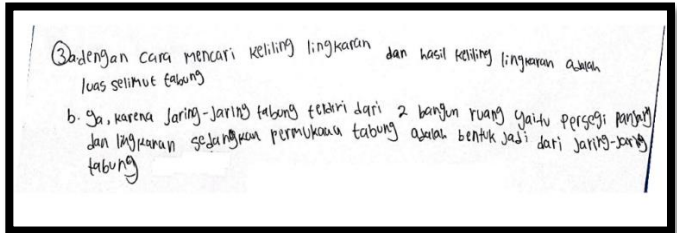 ③a. dengan cara mencari keliling lingkaran dan hasil keliling lingkaran adalah
luas selimut tabung
b. Ya, karena Jaring-Jaring tabung terdiri dari 2 bangun ruang yaitu persegi panjang
dan lingkaran sedangkan permukaaa tabung adalah bentuk jadi dari Jaring-Jaring
tabung